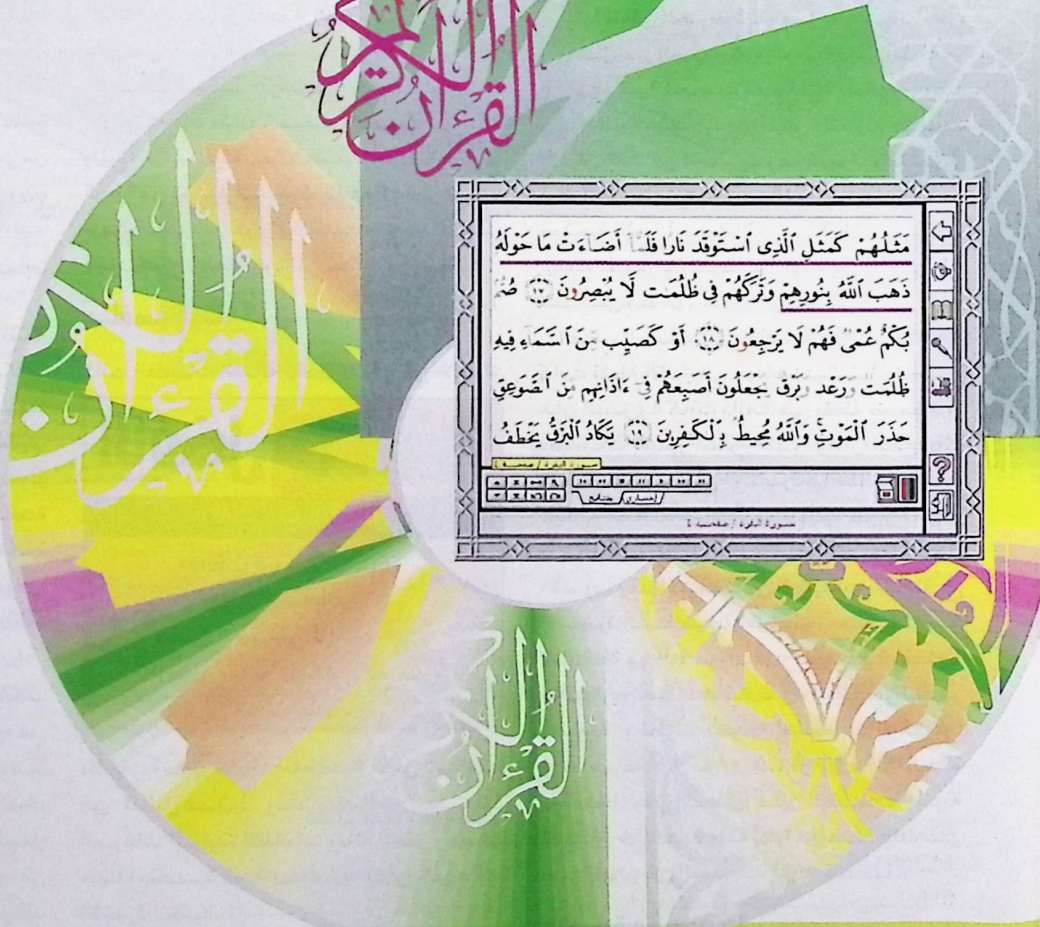 القرآن الكريم
القرآن الكريم
مَثَلُهُمْ كَمَثَلِ ٱلَّذِى ٱسْتَوْقَدَ نَارا فَلَمَّآ أَضَآءَتْ مَا حَوْلَهُ
ذَهَبَ ٱللَّهُ بِنُورِهِمْ وَتَرَكَهُمْ فِى ظُلُمَٰت لَّا يُبْصِرُونَ ١٧ صُمّ
بُكْمٌ عُمْى فَهُمْ لَا يَرْجِعُونَ ١٨ أَوْ كَصَيِّب مِّنَ ٱلسَّمَآءِ فِيهِ
ظُلُمَٰت وَرَعْد وَبَرْق يَجْعَلُونَ أَصَٰبِعَهُمْ فِىٓ ءَاذَانِهِم مِّنَ ٱلصَّوَٰعِقِ
حَذَرَ ٱلْمَوْتِ وَٱللَّهُ مُحِيطٌ بِٱلْكَٰفِرِينَ ١٩ يَكَادُ ٱلْبَرْقُ يَخْطَفُ
سورة البقرة / صفحة ٤
إختيارى متتابع
سورة البقرة / صفحة ٤
القرآن الكريم